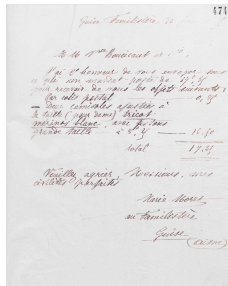 474
Guise Familistère
M. M. Vve Boucicaut et Cie
J'ai l'honneur de vous envoyer sous
ce pli un mandat poste de 17,35
pour recevoir de vous les objets suivants :
par colis postal
Deux camisoles ajustées à
la taille (pour dame) tricot
mérinos blanc, avec
grande taille à 16.50
total 17.35
Veuillez agréer, Messieurs, mes
civilités parfaites
Marie Moret
au Familistère
Guise
(Aisne)